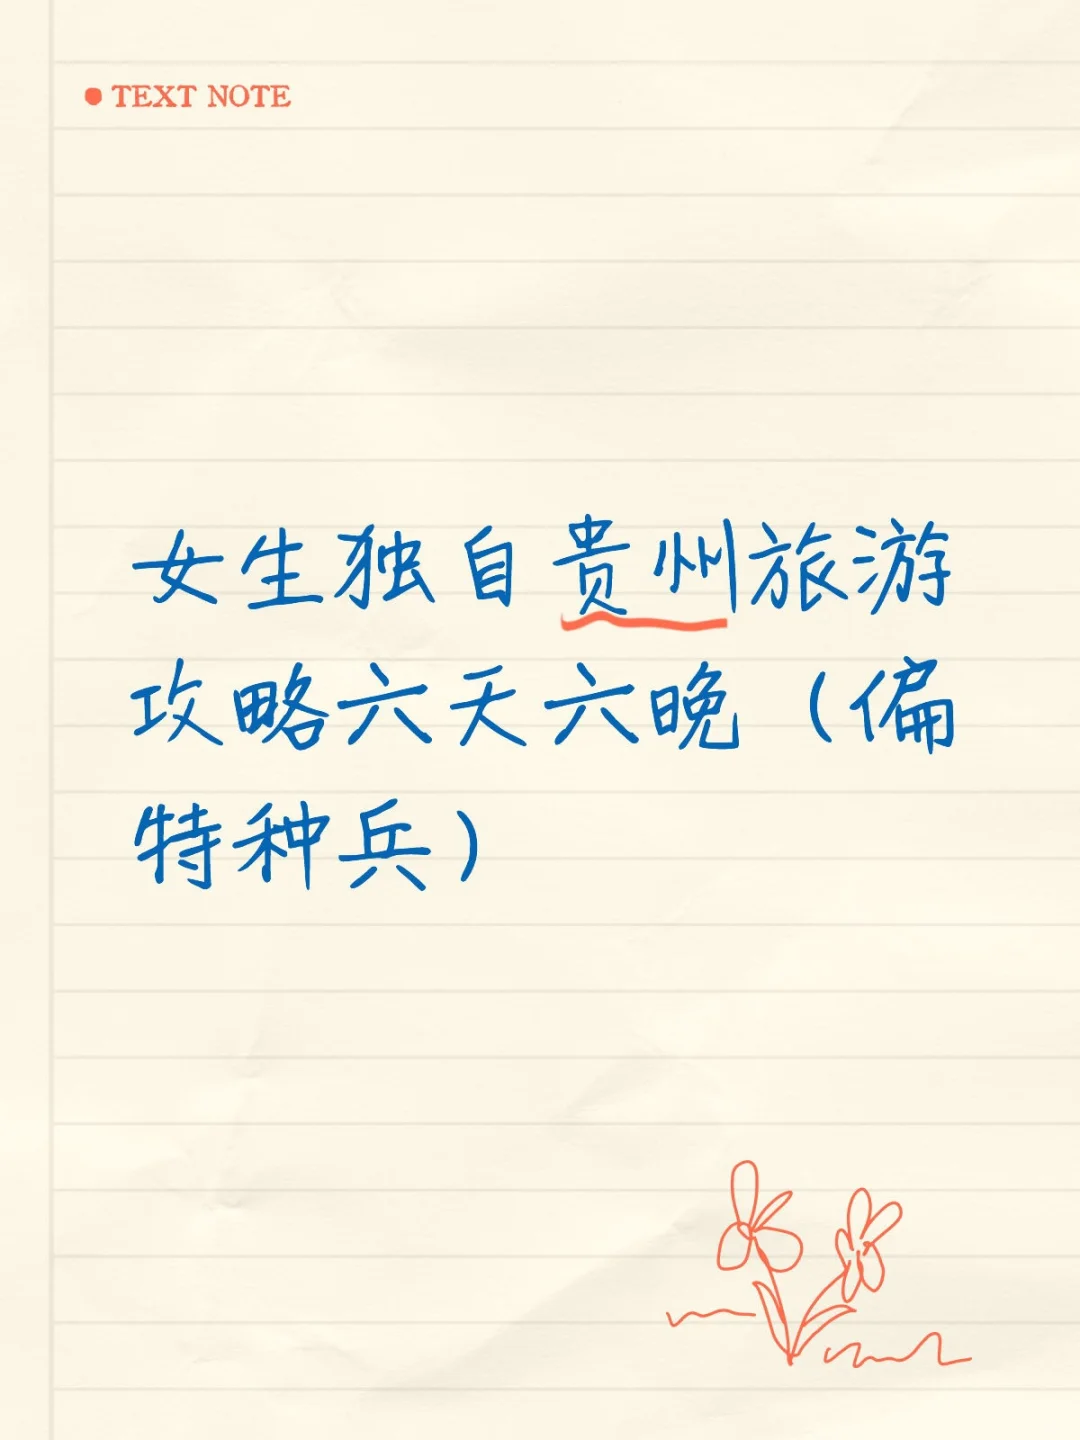 TEXT NOTE
女生独自贵州旅游
攻略六天六晚（偏
特种兵）